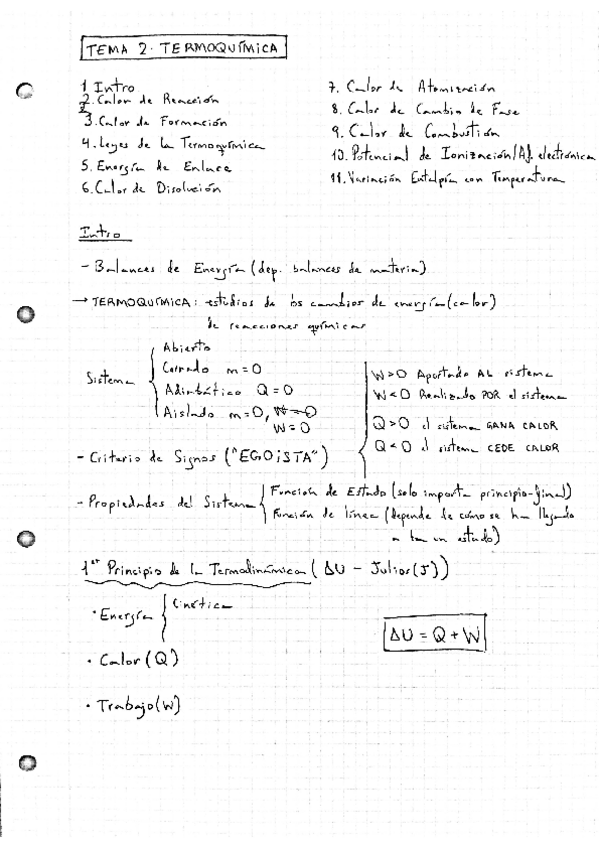 TEMA 2. TERMOQUÍMICA
1 Intro
2. Calor de Reacción
3. Calor de Formación
4. Leyes de la Termoquímica
5. Energía de Enlace
6. Calor de Disolución
7. Calor de Atomización
8. Calor de Cambio de Fase
9. Calor de Combustión
10. Potencial de Ionización/Af. electrónica
11. Variación Entalpía con Temperatura
Intro
- Balances de Energía (dep. balances de materia)
→ TERMOQUÍMICA: estudios de los cambios de energía (calor)
de reacciones químicas
Sistema
Abierto
Cerrado m=0
Adiabático Q=0
Aislado m=0, W=0
W=0
- Criterio de Signos ("EGOÍSTA")
W>0 Aportado AL sistema
W<0 Realizado POR el sistema
Q>0 el sistema GANA CALOR
Q<0 el sistema CEDE CALOR
- Propiedades del Sistema
Función de Estado (solo importa principio-final)
Función de línea (depende de cómo se ha llegado
a tal un estado)
1er Principio de la Termodinámica (ΔU - Julios (J))
· Energía { Cinética
· Calor (Q)
· Trabajo (W)
ΔU = Q + W